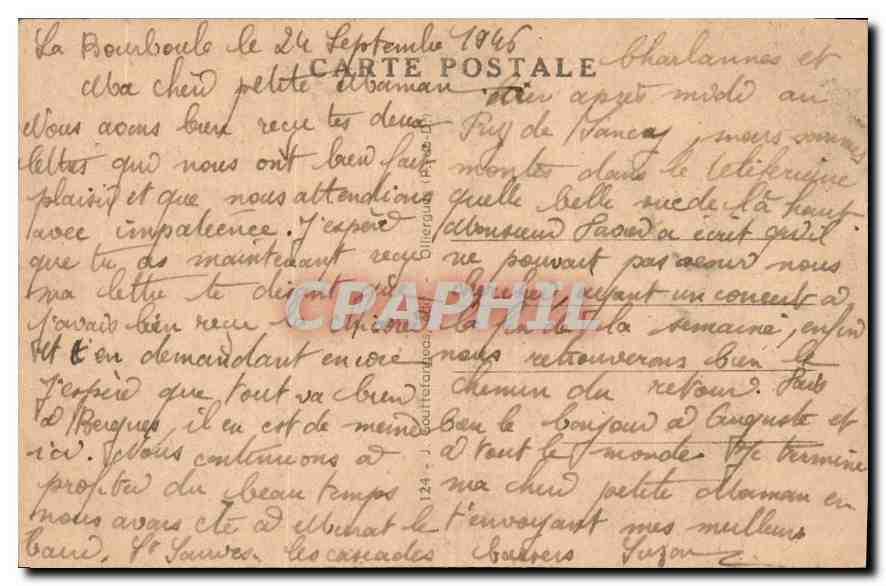 La Bourboule le 24 Septembre 1946
CARTE POSTALE
Ma cherie petite Maman
Nous avons bien reçu tes deux
lettres qui nous ont bien fait
plaisir et que nous attendions
avec impatience. J'espère
que tu as maintenant reçu
ma lettre te disant que
j'avais bien reçu
et t'en demandant encore
J'espère que tout va bien
à Bergues, il en est de même
ici. Nous continuons à
profiter du beau temps
nous avons été à Murat le
Caire, St Sauves, les cascades
Charlannes et
hier après midi au
Puy de Sancy, nous sommes
montés dans le téléférique
quelle belle vue de là haut
Monsieur a écrit qu'il
ne pouvait pas venir nous
chercher ayant un concert à
la fin de la semaine, enfin
nous retrouverons bien le
chemin du retour. Fais
bien le bonjour à Auguste et
à tout le monde. Je termine
ma cherie petite Maman en
t'envoyant mes meilleurs
baisers Suzon
124 - J. Gouttefangeas, - Olliergues (P.-de-D.)
CPAPHIL